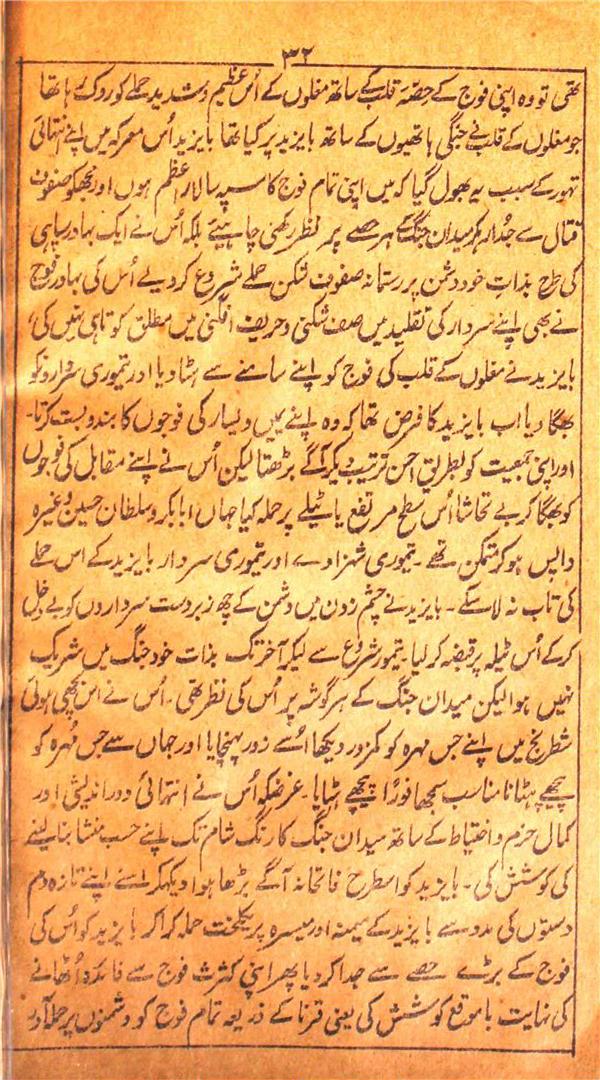 ۳۲
تھی تو وہ اپنی فوج کے حصّہ قلب کے ساتھ مغلوں کے اُس عظیم و شدید حملے کو روک رہا تھا
جو مغلوں کے قلب نے جنگی ہاتھیوں کے ساتھ بایزید پر کیا تھا بایزید اُس معرکہ میں اپنے انتہائی
تہور کے سبب یہ بھول گیا کہ میں اپنی تمام فوج کا سپہ سالار اعظم ہوں اور مجھکو صفوف
قتال سے جُدا رہکر میدان جنگ کے ہر حصے پر نظر رکھنی چاہیئے بلکہ اُس نے ایک بہادر سپاہی
کی طرح بذات خود دشمن پر رستمانہ صفوف شکن حملے شروع کر دیے اُس کی بہادر فوج
نے بھی اپنے سردار کی تقلید میں صف شکنی و حریف افگنی میں مطلق کوتاہی نہیں کی،
بایزید نے مغلوں کے قلب کی فوج کو اپنے سامنے سے ہٹا دیا اور تیموری سردارونکو
بھگا دیا اب بایزید کا فرض تھا کہ وہ اپنے یمین و یسار کی فوجوں کا بندوبست کرتا۔
اور اپنی جمعیت کو بطریق احسن ترتیب دیکر آگے بڑھتا لیکن اُس نے اپنے مقابل کی فوجوں
کو بھگا کر بے تحاشا اُس سطح مرتفع یا ٹیلے پر حملہ کیا جہاں ابابکر و سلطان حسین وغیرہ
واپس ہو کر متمکن تھے۔ تیموری شہزادے اور تیموری سردار بایزید کے اس حملے
کی تاب نہ لا سکے۔ بایزید نے چشم زدن میں دشمن کے چھ زبردست سرداروں کو بے دخل
کر کے اُس ٹیلہ پر قبضہ کر لیا۔ تیمور شروع سے لیکر آخر تک بذات خود جنگ میں شریک
نہیں ہوا لیکن میدان جنگ کے ہر گوشہ پر اُس کی نظر تھی۔ اُس نے اس بچھی ہوئی
شطرنج میں اپنے جس مہرہ کو کمزور دیکھا اُسے زور پہنچایا اور جہاں سے جس مُہرہ کو
پیچھے ہٹانا مناسب سمجھا فوراً پیچھے ہٹایا۔ غرضکہ اُس نے انتہائی دور اندیشی اور
کمال حزم و احتیاط کے ساتھ میدان جنگ کا رنگ شام تک اپنے حسب منشا بنا لینے
کی کوشش کی۔ بایزید کو اسطرح فاتحانہ آگے بڑھا ہوا دیکھکر اسنے اپنے تازہ دم
دستوں کی مدد سے بایزید کے میمنہ اور میسرہ پر یکلخت حملہ کرا کر بایزید کو اُس کی
فوج کے بڑے حصے سے جدا کر دیا پھر اپنی کثرت فوج سے فائدہ اُٹھانے
کی نہایت با موقع کوشش کی یعنی قرنا کے ذریعہ تمام فوج کو دشمنوں پر حملہ آور